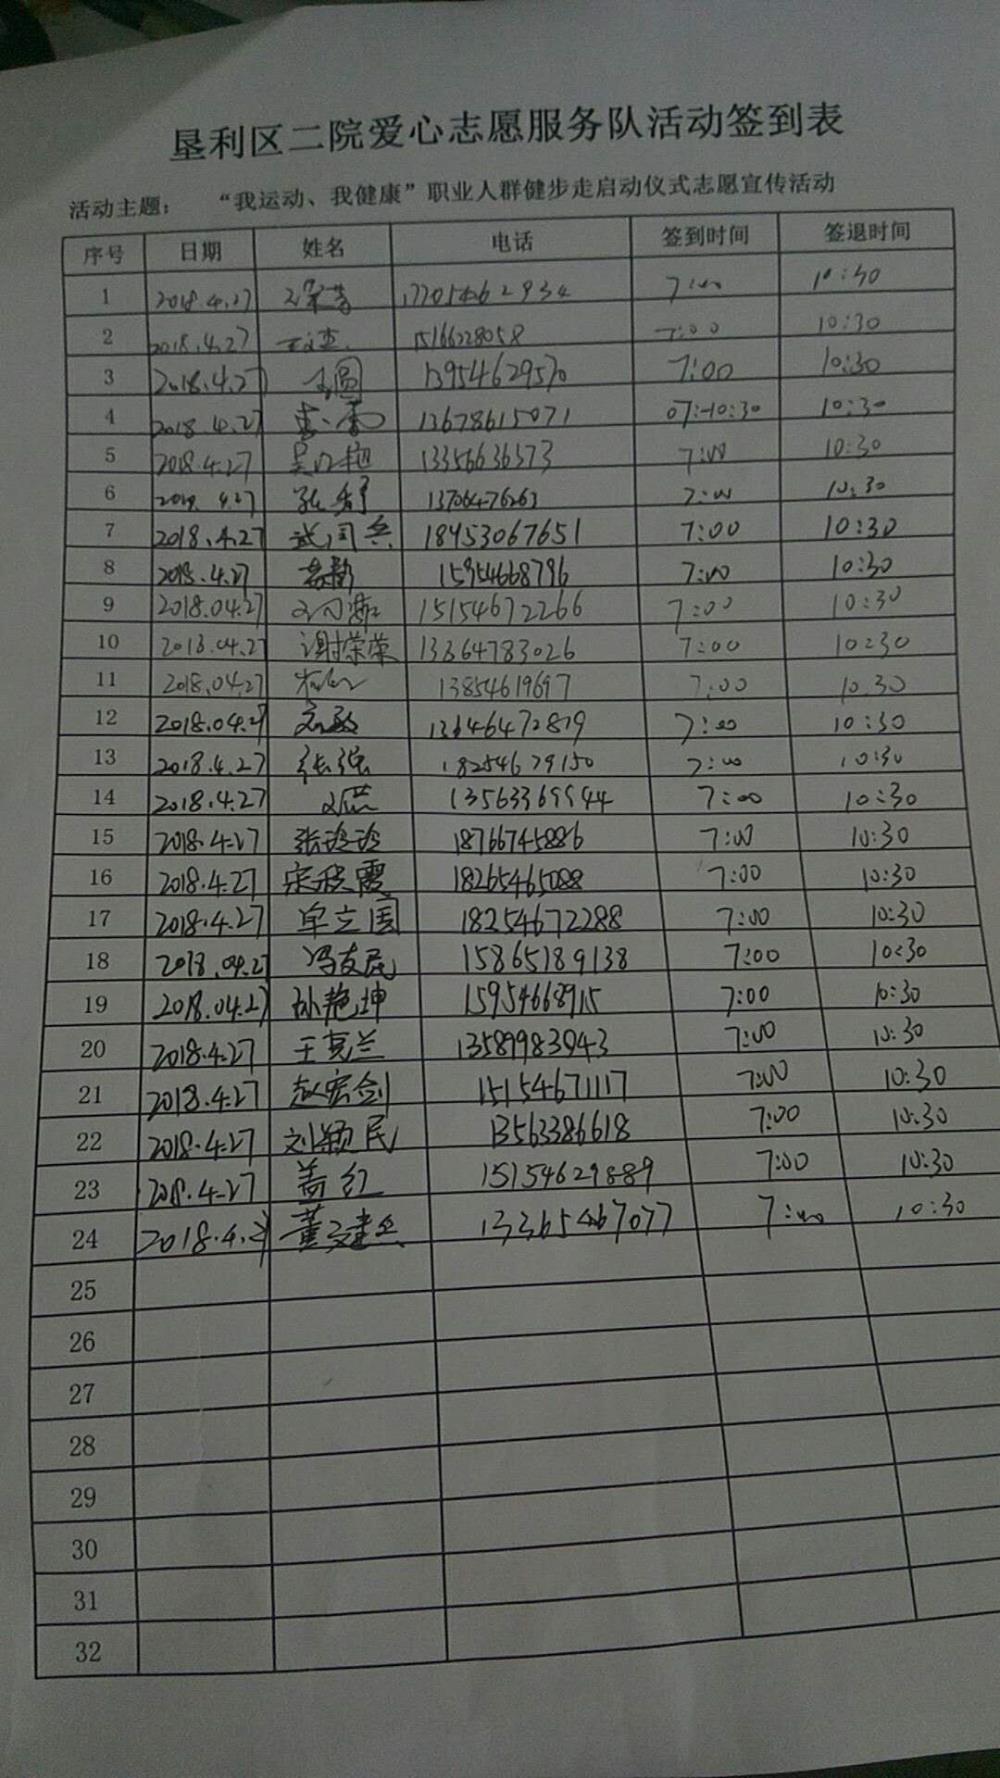 垦利区二院爱心志愿服务队活动签到表
活动主题： “我运动、我健康”职业人群健步走启动仪式志愿宣传活动
序号 日期 姓名 电话 签到时间 签退时间
1 2018.4.27 17705462934 7:00 10:30
2 2018.4.27 1516628058 7:00 10:30
3 2018.4.27 13954629570 7:00 10:30
4 2018.4.27 13678615071 07:-10:30 10:30
5 2018.4.27 13356636373 7:00 10:30
6 4.27 13706476263 7:00 10:30
7 2018.4.27 武国兵 18453067651 7:00 10:30
8 2018.4.27 15954668796 7:00 10:30
9 2018.04.27 15154672266 7:00 10:30
10 2018.04.27 谢荣荣 13364783026 7:00 10:30
11 2018.04.27 13854619697 7:00 10:30
12 2018.04.27 13646472879 7:00 10:30
13 2018.4.27 张强 18254679150 7:00 10:30
14 2018.4.27 7:00 10:30
15 2018.4.27 张玲玲 18766745886 7:00 10:30
16 2018.4.27 宋秋霞 18265465088 7:00 10:30
17 2018.4.27 牟立国 18254672288 7:00 10:30
18 2018.04.27 冯友民 15865189138 7:00 10:30
19 2018.04.27 孙艳坤 15954668915 7:00 10:30
20 2018.4.27 王克兰 13589983943 7:00 10:30
21 2018.4.27 赵宏剑 15154671117 7:00 10:30
22 2018.4.27 刘颖民 13563386618 7:00 10:30
23 2018.4.27 盖红 15154629889 7:00 10:30
24 2018.4.27 13365467077 7:00 10:30
25
26
27
28
29
30
31
32